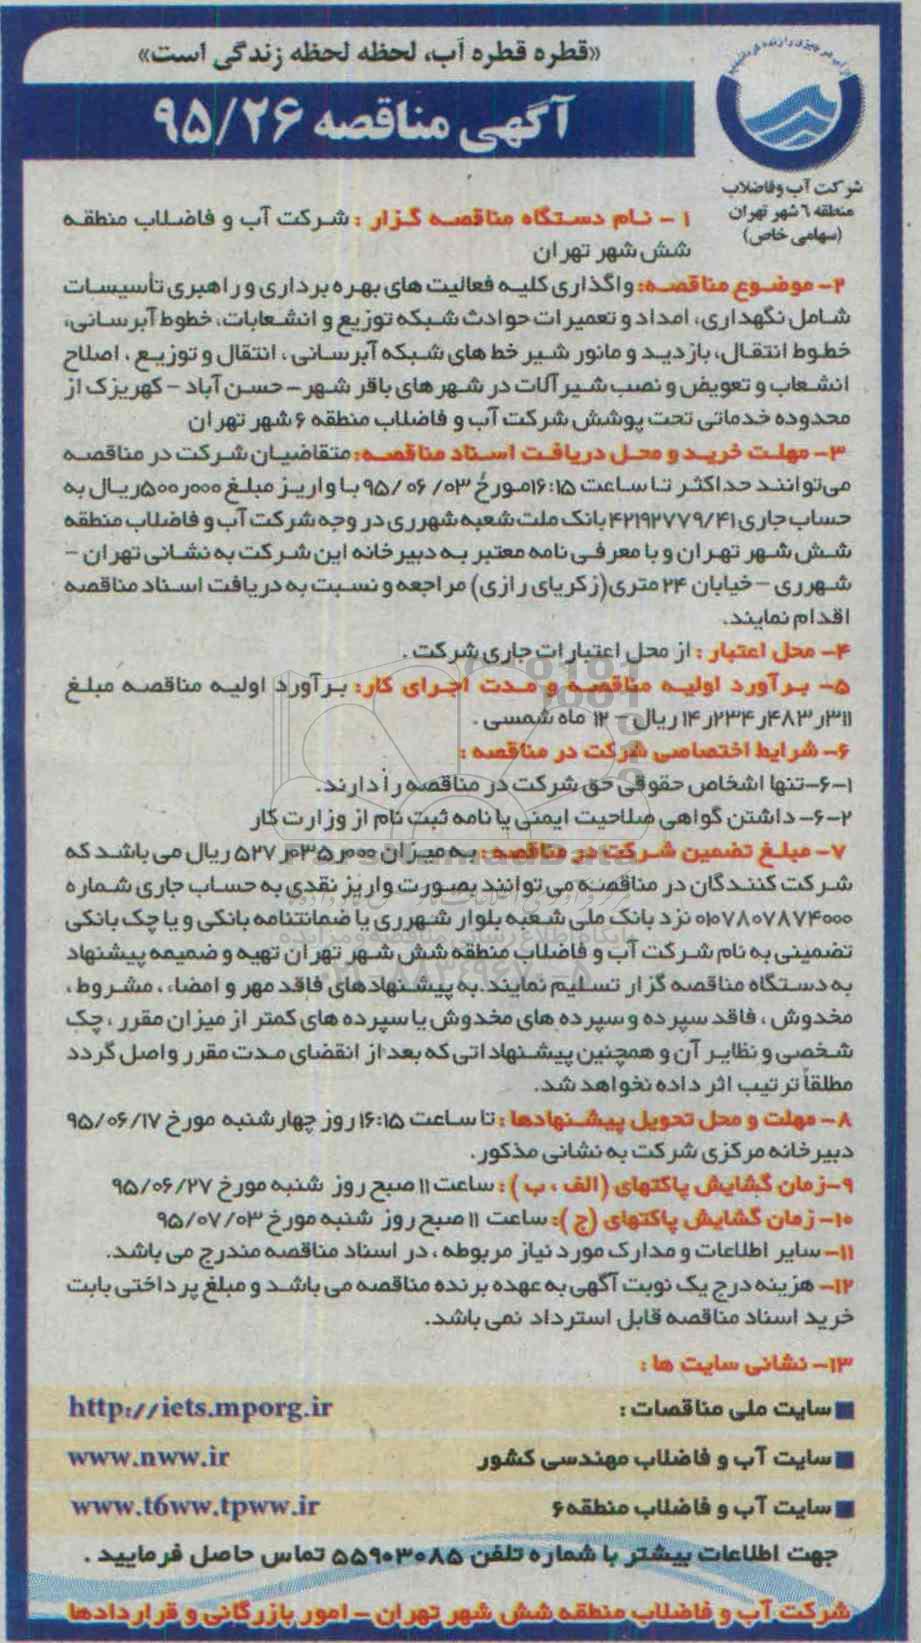 «قطره قطره آب، لحظه لحظه زندگی است»
آگهی مناقصه ۹۵/۲۶
شرکت آب وفاضلاب
منطقه ۶ شهر تهران
(سهامی خاص)
۱ - نام دستگاه مناقصه گزار : شرکت آب و فاضلاب منطقه
شش شهر تهران
۲- موضوع مناقصه: واگذاری کلیه فعالیت های بهره برداری و راهبری تأسیسات
شامل نگهداری، امداد و تعمیرات حوادث شبکه توزیع و انشعابات، خطوط آبرسانی،
خطوط انتقال، بازدید و مانور شیر خط های شبکه آبرسانی ، انتقال و توزیع ، اصلاح
انشعاب و تعویض و نصب شیرآلات در شهرهای باقر شهر - حسن آباد - کهریزک از
محدوده خدماتی تحت پوشش شرکت آب و فاضلاب منطقه ۶ شهر تهران
۳- مهلت خرید و محل دریافت اسناد مناقصه: متقاضیان شرکت در مناقصه
می‌توانند حداکثر تا ساعت ۱۶:۱۵ مورخ ۹۵/۰۶/۰۳ با واریز مبلغ ۵۰۰٫۰۰۰ ریال به
حساب جاری ۴۲۱۹۲۷۷۹/۴۱ بانک ملت شعبه شهرری در وجه شرکت آب و فاضلاب منطقه
شش شهر تهران و با معرفی نامه معتبر به دبیرخانه این شرکت به نشانی تهران -
شهرری - خیابان ۲۴ متری(زکریای رازی) مراجعه و نسبت به دریافت اسناد مناقصه
اقدام نمایند.
۴- محل اعتبار : از محل اعتبارات جاری شرکت .
۵- برآورد اولیه مناقصه و مدت اجرای کار: برآورد اولیه مناقصه مبلغ
۱۴٫۲۳۴٫۴۸۳٫۳۱۱ ریال - ۱۲ ماه شمسی .
۶- شرایط اختصاصی شرکت در مناقصه :
۶-۱-تنها اشخاص حقوقی حق شرکت در مناقصه را دارند.
۶-۲- داشتن گواهی صلاحیت ایمنی یا نامه ثبت نام از وزارت کار
۷- مبلغ تضمین شرکت در مناقصه : به میزان ۵۲۷٫۰۳۵٫۰۰۰ ریال می باشد که
شرکت کنندگان در مناقصه می توانند بصورت واریز نقدی به حساب جاری شماره
۰۱۰۷۸۰۷۸۷۴۰۰۰ نزد بانک ملی شعبه بلوار شهرری یا ضمانتنامه بانکی و یا چک بانکی
تضمینی به نام شرکت آب و فاضلاب منطقه شش شهر تهران تهیه و ضمیمه پیشنهاد
به دستگاه مناقصه گزار تسلیم نمایند. به پیشنهادهای فاقد مهر و امضاء ، مشروط ،
مخدوش ، فاقد سپرده و سپرده های مخدوش یا سپرده های کمتر از میزان مقرر ، چک
شخصی و نظایر آن و همچنین پیشنهاداتی که بعد از انقضای مدت مقرر واصل گردد
مطلقاً ترتیب اثر داده نخواهد شد.
۸- مهلت و محل تحویل پیشنهادها : تا ساعت ۱۶:۱۵ روز چهارشنبه مورخ ۹۵/۰۶/۱۷
دبیرخانه مرکزی شرکت به نشانی مذکور.
۹-زمان گشایش پاکتهای (الف ، ب) : ساعت ۱۱ صبح روز شنبه مورخ ۹۵/۰۶/۲۷
۱۰- زمان گشایش پاکتهای (ج): ساعت ۱۱ صبح روز شنبه مورخ ۹۵/۰۷/۰۳
۱۱- سایر اطلاعات و مدارک مورد نیاز مربوطه ، در اسناد مناقصه مندرج می باشد.
۱۲- هزینه درج یک نوبت آگهی به عهده برنده مناقصه می باشد و مبلغ پرداختی بابت
خرید اسناد مناقصه قابل استرداد نمی باشد.
۱۳- نشانی سایت ها :
سایت ملی مناقصات : http://iets.mporg.ir
سایت آب و فاضلاب مهندسی کشور www.nww.ir
سایت آب و فاضلاب منطقه ۶ www.t6ww.tpww.ir
جهت اطلاعات بیشتر با شماره تلفن ۵۵۹۰۳۰۸۵ تماس حاصل فرمایید .
شرکت آب و فاضلاب منطقه شش شهر تهران - امور بازرگانی و قراردادها